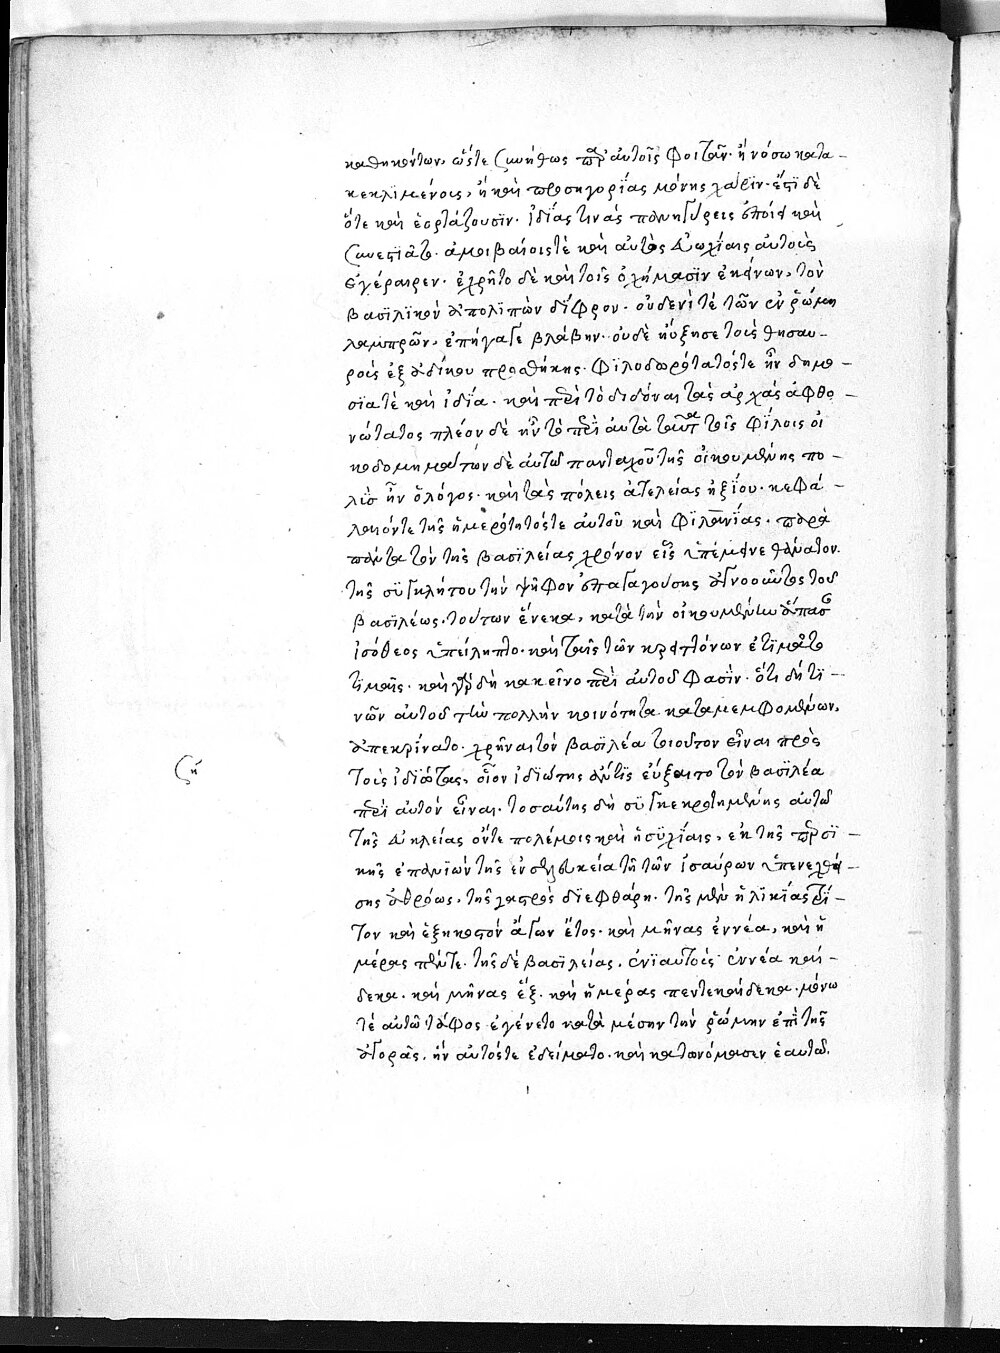 καθηκόντων, ὥστε συνήθως παρ' αὐτοῖς φοιτᾶν· ἢ νόσω κατα-
κεκλϊμένοις, ἢ καὶ προσηγορΐας μόνης χάρϊν· ἔτϊ δὲ
ὅτε καὶ ἑορτάζουσϊν· ἰδίας τινὰς πανηγύρεις ἐποίει καὶ
συνεστιᾶτο· ἀμοιβαίοις τὲ καὶ αὐτὸς εὐωχίαις αὐτοὺς
ἐγέραιρεν· ἐχρῆτο δὲ καὶ τοῖς ὀχήμασϊν ἐκείνων, τὸν
βασϊλϊκὸν ἀπολϊπὼν δίφρον· οὐδενὶ τὲ τῶν ἐν ῥώμη
λαμπρῶν, ἐπήγαγε βλάβην· οὐδὲ ηὔξησε τοὺς θησαυ-
ροὺς ἐξ ἀδίκου προσθήκης· φϊλοδωρότατός τε ἦν δημο-
σία τὲ καὶ ἰδία· καὶ περὶ τὸ διδόναι τὰς ἀρχὰς ἀφθο-
νώτατος πλέον δὲ ἦν τὸ περὶ αὐτὰ ταῦτα τοῖς φΐλοις οἰ
κοδομημάτων δὲ αὐτῶ πανταχοῦ τῆς οἰκουμένης πο-
λὺς ἦν ὁ λόγος· καὶ τὰς πόλεις ἀτελείας ἠξΐου· κεφά-
λαιόν τε τῆς ἡμερότητός τε αὐτοῦ καὶ φϊλανΐας· παρὰ
πάντα τὸν τῆς βασϊλείας χρόνον εἷς ὑπέμεινε θάνατον
τῆς συγκλήτου τὴν ψῆφον ἐπαγαγούσης ἀγνοοῦντος τοῦ
βασϊλέως· τούτων ἕνεκα, κατὰ τὴν οἰκουμένην ἅπασ
ἰσόθεος ὑπείληπτο· καὶ ταῖς τῶν κρειττόνων ἐτϊμᾶτο
τϊμαῖς· καὶ γὰρ δὴ κακεῖνο περὶ αὐτοῦ φασϊν· ὅτι δή τϊ-
νῶν αὐτοῦ τὴν πολλὴν κοινότητα καταμεμφομένων,
ἀπεκρίνατο· χρῆναι τὸν βασϊλέα τοιοῦτον εἶναι πρὸς
τοὺς ἰδϊώτας, οἷον ἰδϊώτης ἄν τϊς εὔξαιτο τὸν βασϊλέα
ζή
περὶ αὐτὸν εἶναι· τοσαύτης δὴ συγκεκροτημένης αὐτῶ
τῆς εὐκλείας ἔν τε πολέμοις καὶ ἡσϋχΐαις, ἐκ τῆς περσϊ-
κῆς ἐπανϊὼν τῆς ἐν σελευκεία τῆ τῶν ἰσαύρων ὑπενεχθεί-
σης ἀθρόως, τῆς γαστρὸς δϊεφθάρη· τῆς μὲν ἡλϊκίας τρΐ-
τον καὶ ἑξηκοστὸν ἄγων ἔτος· καὶ μῆνας ἐννέα, καὶ ἡ
μέρας πέντε· τῆς δὲ βασϊλείας, ἐνϊαυτοὺς ἐννέα καί-
δεκα· καὶ μῆνας ἓξ· καὶ ἡμέρας πεντεκαίδεκα· μόνω
τὲ αὐτῶ τάφος ἐγένετο κατὰ μέσην τὴν ῥώμην ἐπὶ τῆς
ἀγορᾶς, ἣν αὐτός τε ἐδείματο· καὶ κατωνόμασεν ἑαυτῶ,